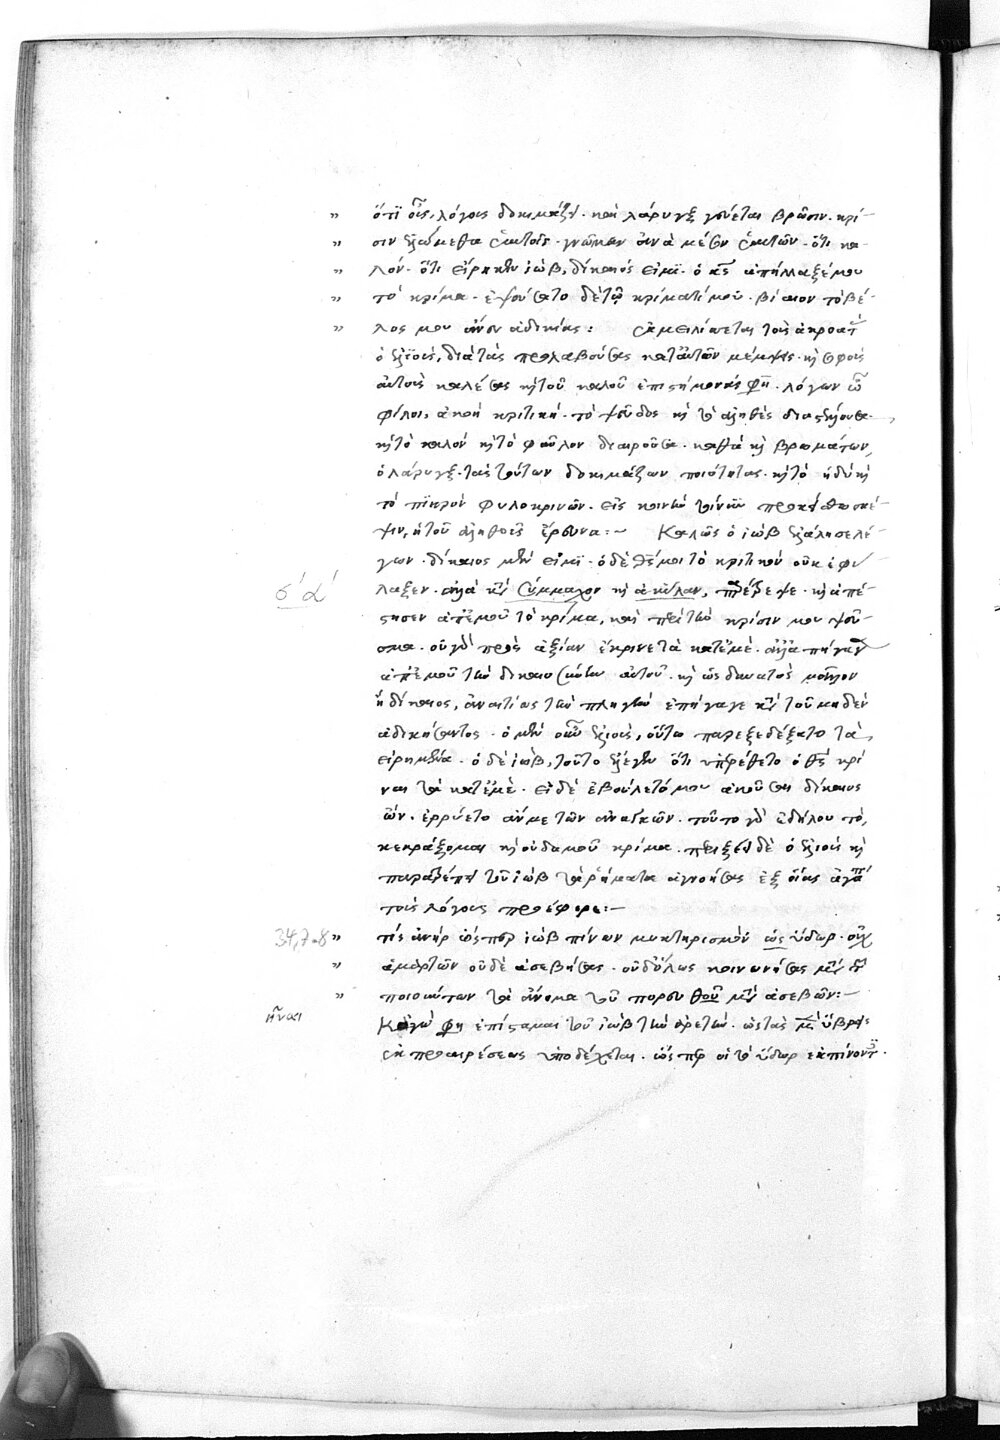 " ὅτι οὖς λόγους δοκιμάζει· καὶ λάρυγξ γεύεται βρῶσιν· κρί-
" σιν ἑλώμεθα ἑαυτοῖς· γνῶμεν ἀνὰ μέσον ἑαυτῶν· ὅτι κα-
" λόν· ὅτι εἴρηκεν ἰώβ, δίκαιός εἰμι· ὁ κς ἀπήλλαξέ μου
" τὸ κρίμα· ἐψεύσατο δὲ τῷ κρίματί μου· βίαιον τὸ βέ-
" λος μου ἄνευ ἀδικίας: τοῖς ἀκροατ
ὁ ἐλιοῦς, διὰ τὰς προλαβούσας κατ' αὐτῶν μέμψεις· κὴ σοφοὺς
αὐτοὺς καλέσας κὴ τοῦ καλοῦ ἐπιστήμονάς φη· λόγων ὦ
φίλοι, ἀκοὴ κριτική· τὸ ψεῦδος κὴ τὸ ἀληθὲς διαστέλλουσα·
κὴ τὸ καλὸν κὴ τὸ φαῦλον διαιροῦσα· καθὰ κὴ βρωμάτων,
ὁ λάρυγξ· τὰς τούτων δοκιμάζων ποιότητας· κὴ τὸ ἡδὺ κὴ
τὸ πικρὸν φυλοκρινῶν· εἰς κοινὴν τοίνυν προκείσθω σκέ-
ψιν, ἡ τοῦ ἀληθοῦς ἔρευνα:~ Καλῶς ὁ ἰὼβ ἐλάλησε λέ-
γων· δίκαιος μέν εἰμι· ὁ δὲ θς μοι τὸ κριτικὸν οὐκ ἐφύ-
σ´ α´ λαξεν· ἀλλὰ κτ Σύμμαχον κὴ ἀκύλαν, κὴ ἀπέ-
στησεν ἀπ' ἐμοῦ τὸ κρίμα, καὶ περὶ τὴν κρίσιν μου ψεῦ-
σμα· οὐ γὰρ πρὸς ἀξίαν ἔκρινε τὰ κατ' ἐμέ·
ἀπ' ἐμοῦ τὴν δικαιοσύνην αὐτοῦ· κὴ ὡς δυνατὸς μᾶλλον
ἢ δίκαιος, ἀναιτίως τὴν πληγὴν ἐπήγαγε κτ τοῦ μηδὲν
ἀδικήσαντος· ὁ μὲν οὖν ἐλιοὺς, οὕτω παρεξεδέξατο τὰ
εἰρημένα· ὁ δὲ ἰώβ, τοῦτο ἔλεγεν ὅτι ὑπερέθετο ὁ θς κρί
ναι τὰ κατ' ἐμέ· εἰ δὲ ἐβούλετό μου ἀκοῦσαι δίκαιος
ὤν· ἐρρύετο ἄν με τῶν ἀναγκῶν· τοῦτο γὰρ ἐδήλου τὸ,
κεκράξομαι κὴ οὐδαμοῦ κρίμα· δὲ ὁ ἐλιοὺς κὴ
παρατρέπει τοῦ ἰὼβ τὰ ῥήματα ἀγνοήσας ἐξ οἵας
τοὺς λόγους προέφερε:~
34,7-8 " τίς ἀνὴρ ὥσπερ ἰὼβ πίνων μυκτηρισμὸν ὡς ὕδωρ· οὐχ
" ἁμαρτῶν οὐδὲ ἀσεβήσας· οὐδ' ὅλως κοινωνήσας μετὰ
" ποιούντων τὰ ἄνομα τοῦ πορευθοῦ μετὰ ἀσεβῶν:~
ῆναι Κἀγώ φη ἐπίσταμαι τοῦ ἰὼβ τὴν ἀρετὴν· ὡς τὰς μὲν ὕβρεις
ἐκ προαιρέσεως ὑποδέχεται· ὥσπερ οἱ τὸ ὕδωρ ἐκπίνοντ